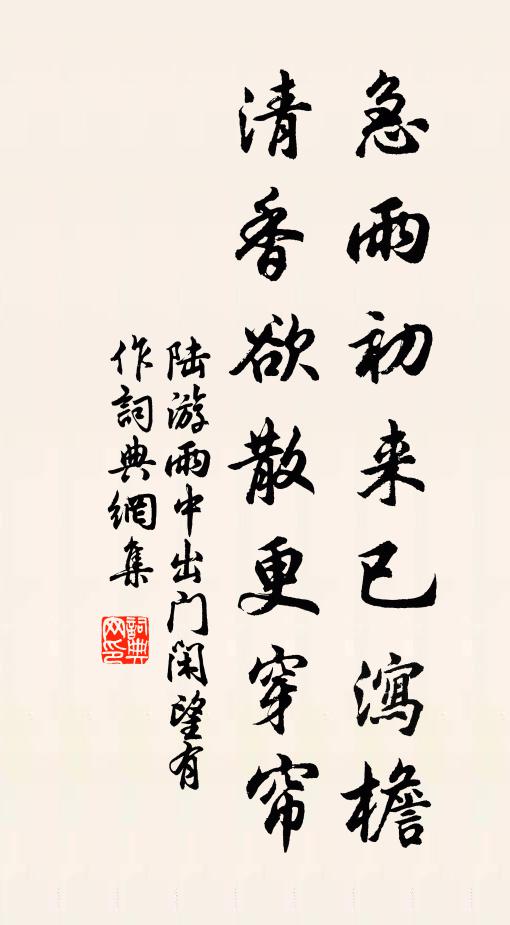 急雨初来已瀉檐
清香欲散更穿帘
陆游雨中出门闲望有
作詞典網集
詞典网印